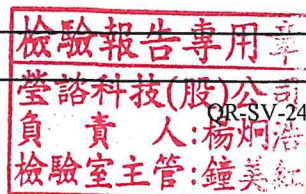 檢驗報告專用章
瑩諮科技(股)公司
QR-SV-24
負責人:楊炯浩
檢驗室主管:鐘美紅